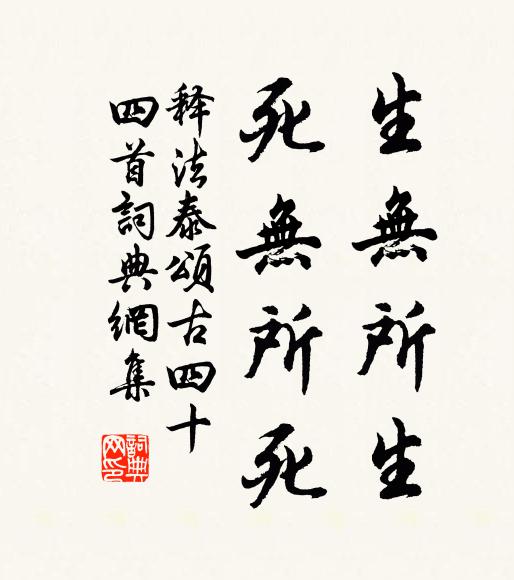 生無所生
死無所死
释法泰頌古四十
四首詞典網集
詞典网印